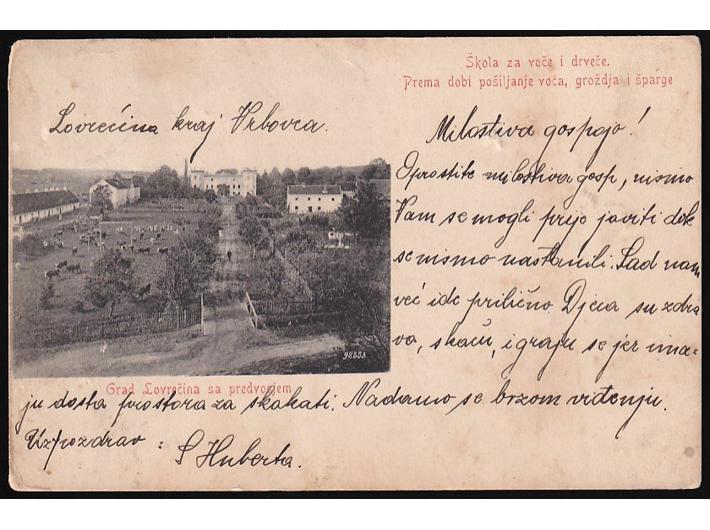 Škola za voče i drveče.
Prema dobi pošiljanje voća, groždja i šparge
Lovrećina kraj Vrbovca.
Milostiva gospojo!
Oprostite milostiva gosp, nismo
Vam se mogli prije javiti dok
se nismo nastanili. Sad nam
već ide prilično. Djeca su zdra
va, skaču, igraju se jer ima-
98603
Grad Lovrečina sa predvorjem
ju dosta prostora za skakati. Nadamo se brzom viđenju.
Uz pozdrav :
S Huberta.